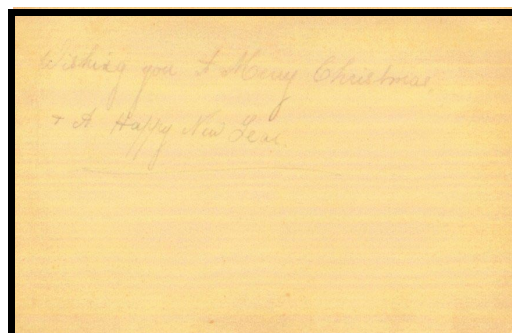 Wishing you A Merry Christmas
& A Happy New Year.